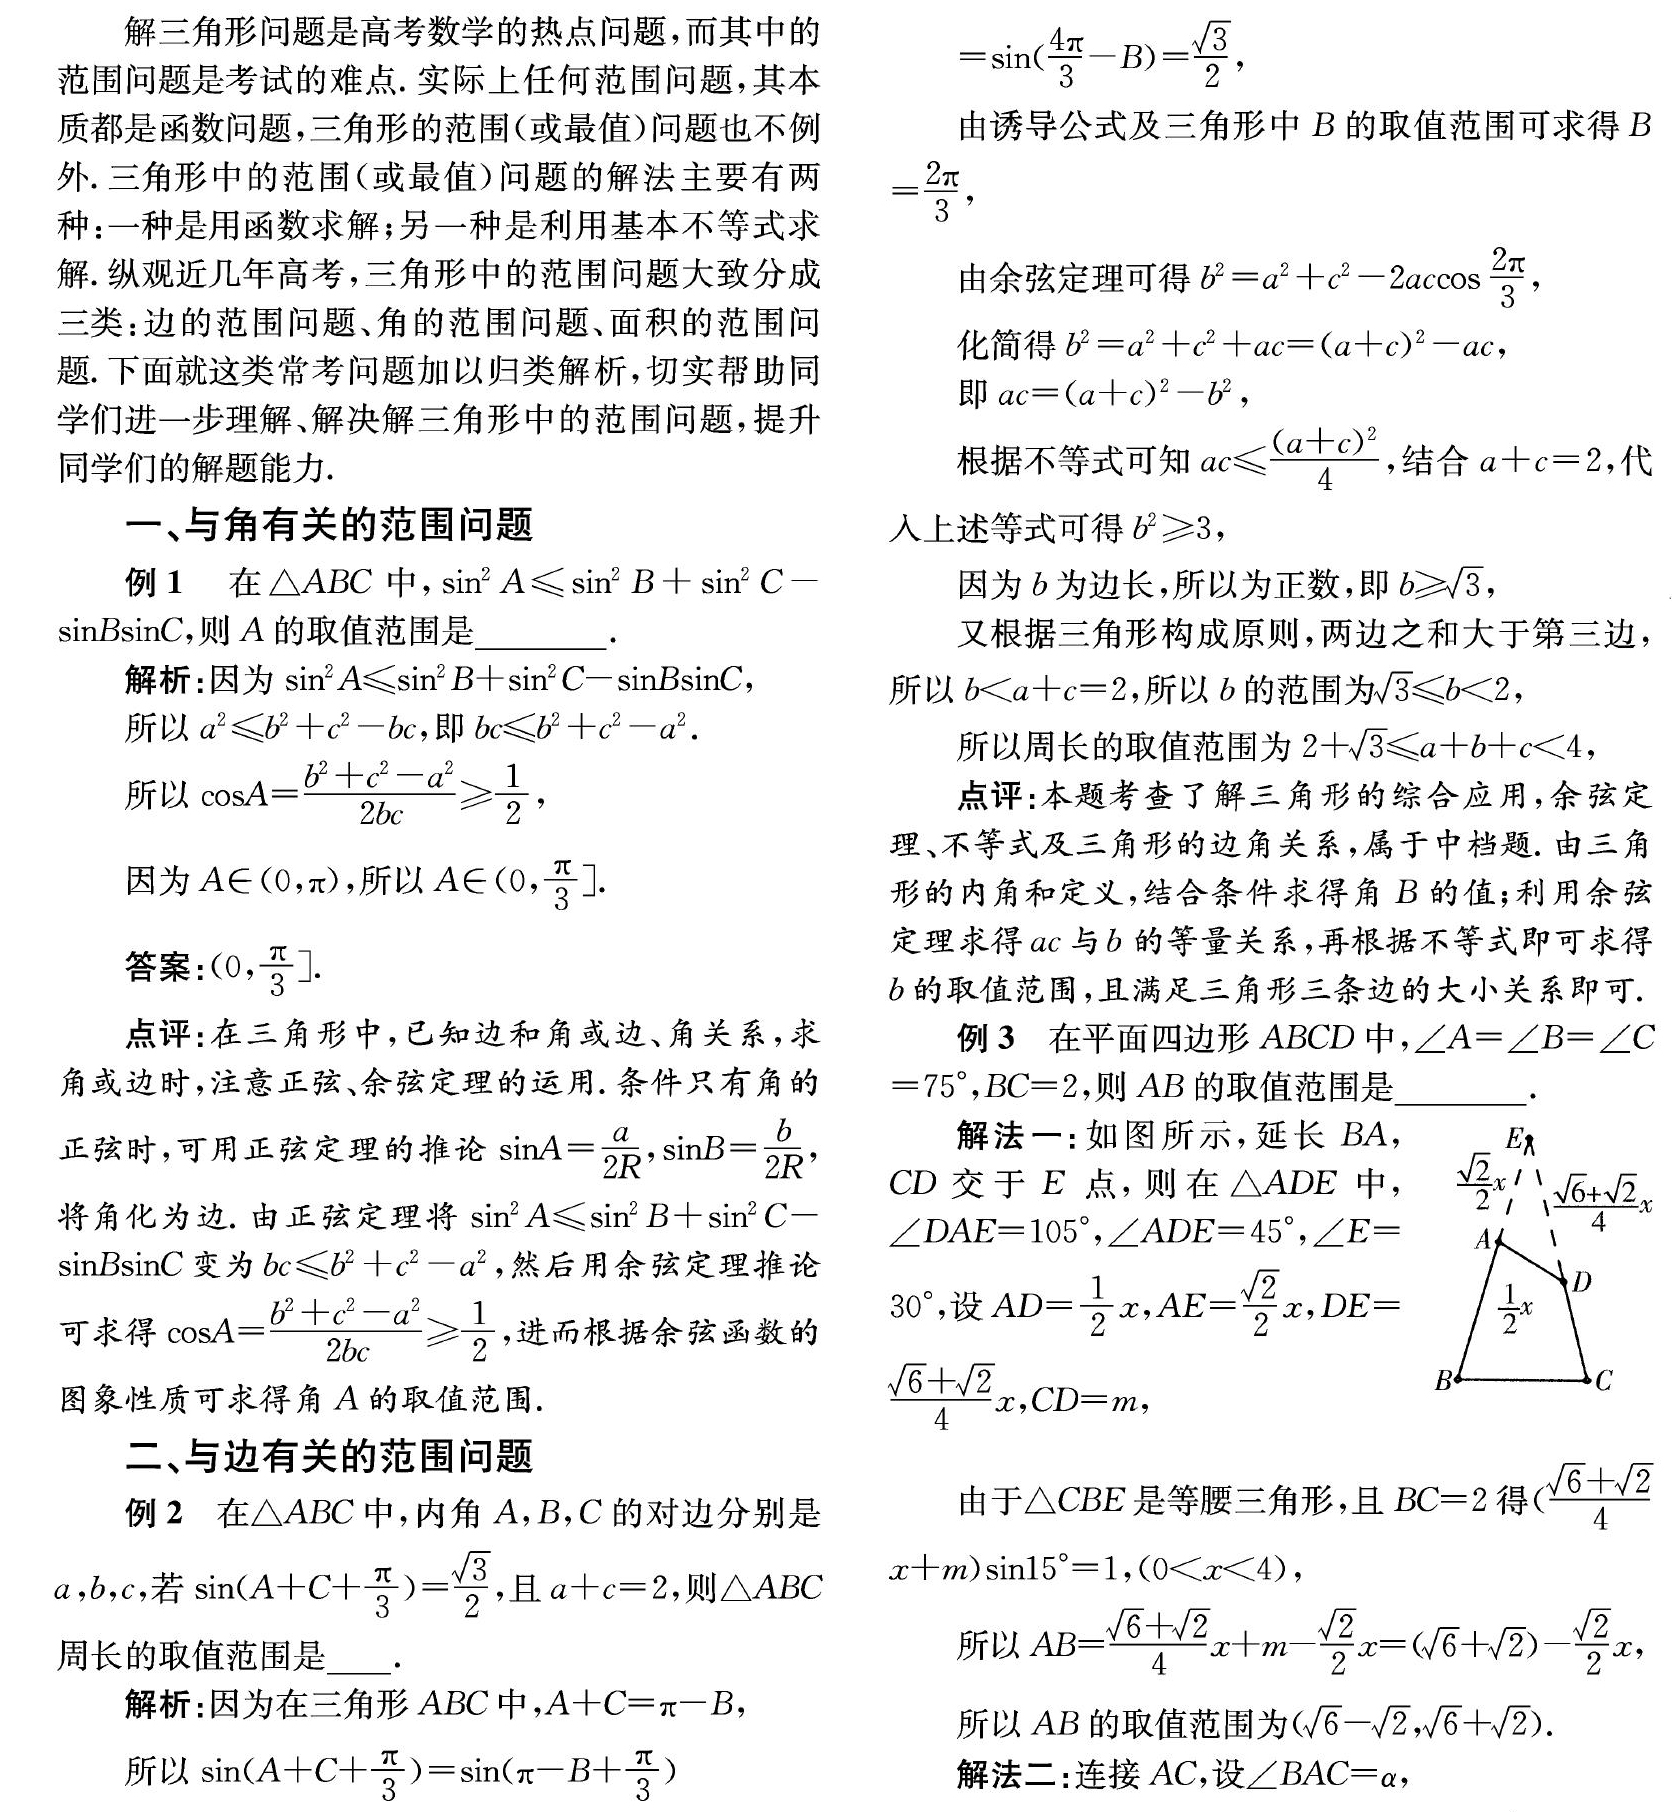 解三角形问题是高考数学的热点问题,而其中的
范围问题是考试的难点. 实际上任何范围问题,其本
质都是函数问题,三角形的范围(或最值)问题也不例
外. 三角形中的范围(或最值)问题的解法主要有两
种:一种是用函数求解;另一种是利用基本不等式求
解. 纵观近几年高考,三角形中的范围问题大致分成
三类:边的范围问题、角的范围问题、面积的范围问
题. 下面就这类常考问题加以归类解析,切实帮助同
学们进一步理解、解决解三角形中的范围问题,提升
同学们的解题能力.
一、与角有关的范围问题
例 1 在△ABC 中, sin² A⩽sin² B+sin² C−
sinBsinC,则 A 的取值范围是________.
解析:因为 sin²A⩽sin²B+sin²C−sinBsinC,
所以 a²⩽b²+c²−bc,即 bc⩽b²+c²−a².
所以 cosA=\frac{b²+c²−a²}{2bc}⩾\frac{1}{2},
因为 A∈(0,π),所以 A∈(0,\frac{π}{3}].
答案:(0,\frac{π}{3}].
点评:在三角形中,已知边和角或边、角关系,求
角或边时,注意正弦、余弦定理的运用. 条件只有角的
正弦时,可用正弦定理的推论 sinA=\frac{a}{2R},sinB=\frac{b}{2R},
将角化为边. 由正弦定理将 sin²A⩽sin²B+sin²C−
sinBsinC 变为 bc⩽b²+c²−a²,然后用余弦定理推论
可求得 cosA=\frac{b²+c²−a²}{2bc}⩾\frac{1}{2},进而根据余弦函数的
图象性质可求得角 A 的取值范围.
二、与边有关的范围问题
例 2 在△ABC 中,内角 A,B,C 的对边分别是
a,b,c,若 sin(A+C+\frac{π}{3})=\frac{√3}{2},且 a+c=2,则△ABC
周长的取值范围是____.
解析:因为在三角形 ABC 中,A+C=π−B,
所以 sin(A+C+\frac{π}{3})=sin(π−B+\frac{π}{3})
=sin(\frac{4π}{3}−B)=\frac{√3}{2},
由诱导公式及三角形中 B 的取值范围可求得 B
=\frac{2π}{3},
由余弦定理可得 b²=a²+c²−2accos\frac{2π}{3},
化简得 b²=a²+c²+ac=(a+c)²−ac,
即 ac=(a+c)²−b²,
根据不等式可知 ac⩽\frac{(a+c)²}{4},结合 a+c=2,代
入上述等式可得 b²⩾3,
因为 b 为边长,所以为正数,即 b⩾√3,
又根据三角形构成原则,两边之和大于第三边,
所以 b<a+c=2,所以 b 的范围为√3⩽b<2,
所以周长的取值范围为 2+√3⩽a+b+c<4,
点评:本题考查了解三角形的综合应用,余弦定
理、不等式及三角形的边角关系,属于中档题. 由三角
形的内角和定义,结合条件求得角 B 的值;利用余弦
定理求得 ac 与 b 的等量关系,再根据不等式即可求得
b 的取值范围,且满足三角形三条边的大小关系即可.
例 3 在平面四边形 ABCD 中,∠A=∠B=∠C
=75°,BC=2,则 AB 的取值范围是________.
解法一:如图所示,延长 BA,
CD 交于 E 点,则在△ADE 中,
∠DAE=105°,∠ADE=45°,∠E=
30°,设 AD=\frac{1}{2}x,AE=\frac{√2}{2}x,DE=
\frac{√6+√2}{4}x,CD=m,
E
\frac{√2}{2}x
\frac{√6+√2}{4}x
A
D
\frac{1}{2}x
B
C
由于△CBE 是等腰三角形,且 BC=2 得(\frac{√6+√2}{4}
x+m)sin15°=1,(0<x<4),
所以 AB=\frac{√6+√2}{4}x+m−\frac{√2}{2}x=(√6+√2)−\frac{√2}{2}x,
所以 AB 的取值范围为(√6−√2,√6+√2).
解法二:连接 AC,设∠BAC=α,